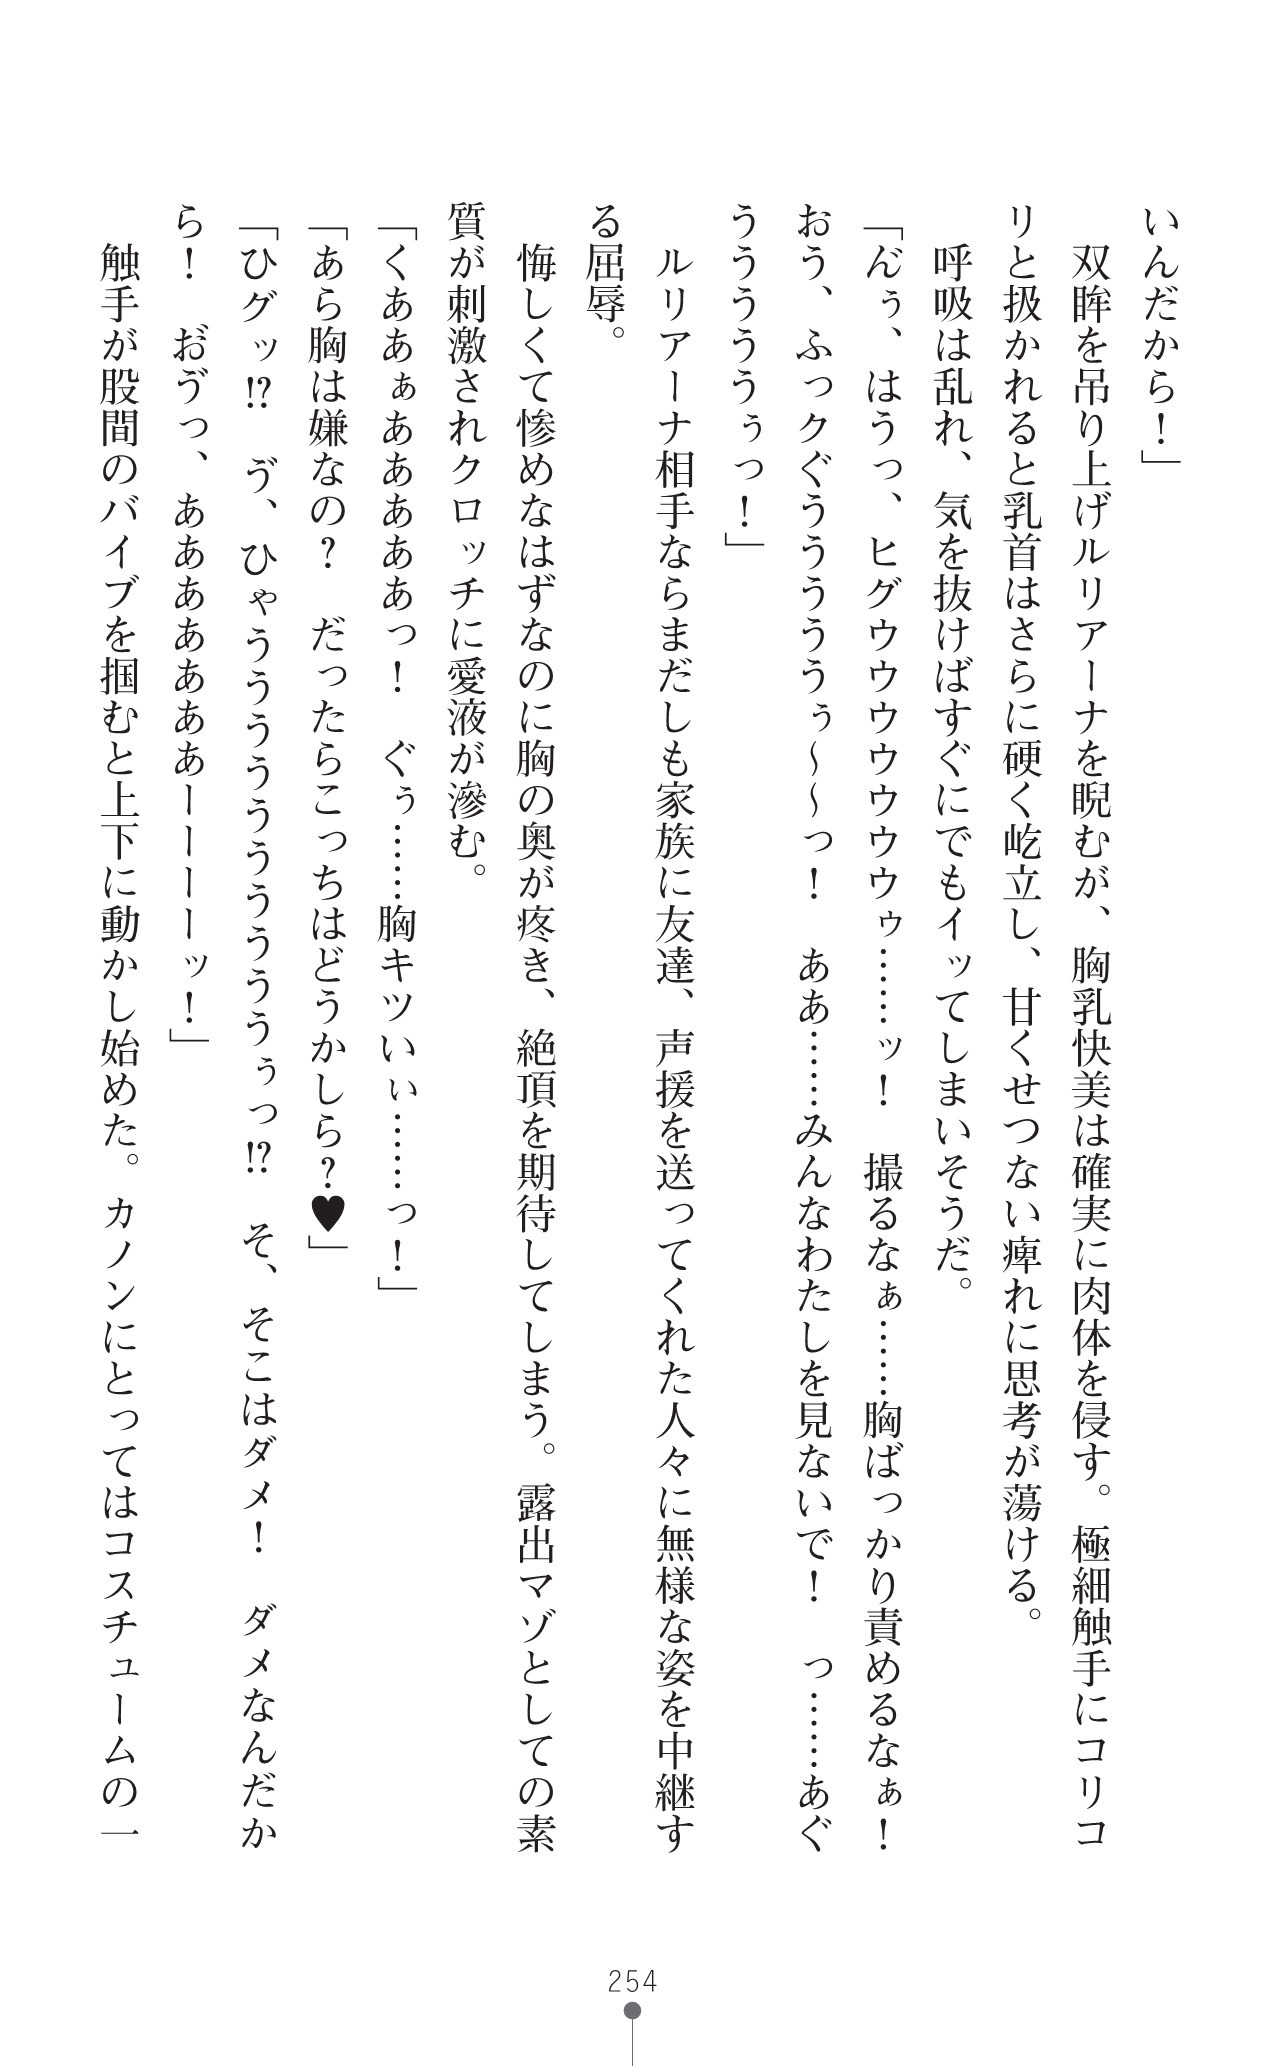 いんだから！」
　双眸を吊り上げルリアーナを睨むが、胸乳快美は確実に肉体を侵す。極細触手にコリコ
リと扱かれると乳首はさらに硬く屹立し、甘くせつない痺れに思考が蕩ける。
　呼吸は乱れ、気を抜けばすぐにでもイッてしまいそうだ。
「ん゛ぅ、はうっ、ヒグウウウウウウウゥ……ッ！　撮るなぁ……胸ばっかり責めるなぁ！
おう、ふっクぐうううううぅ～～っ！　ああ……みんなわたしを見ないで！　っ……あぐ
うううううぅっ！」
　ルリアーナ相手ならまだしも家族に友達、声援を送ってくれた人々に無様な姿を中継す
る屈辱。
　悔しくて惨めなはずなのに胸の奥が疼き、絶頂を期待してしまう。露出マゾとしての素
質が刺激されクロッチに愛液が滲む。
「くああぁあああああっ！　ぐぅ……胸キツいぃ……っ！」
「あら胸は嫌なの？　だったらこっちはどうかしら？♥」
「ひグッ!?　ゔ、ひゃうううううううううぅっ!?　そ、そこはダメ！　ダメなんだか
ら！　お゛ゔっ、あああああああーーーーッ！」
　触手が股間のバイブを掴むと上下に動かし始めた。カノンにとってはコスチュームの一
254